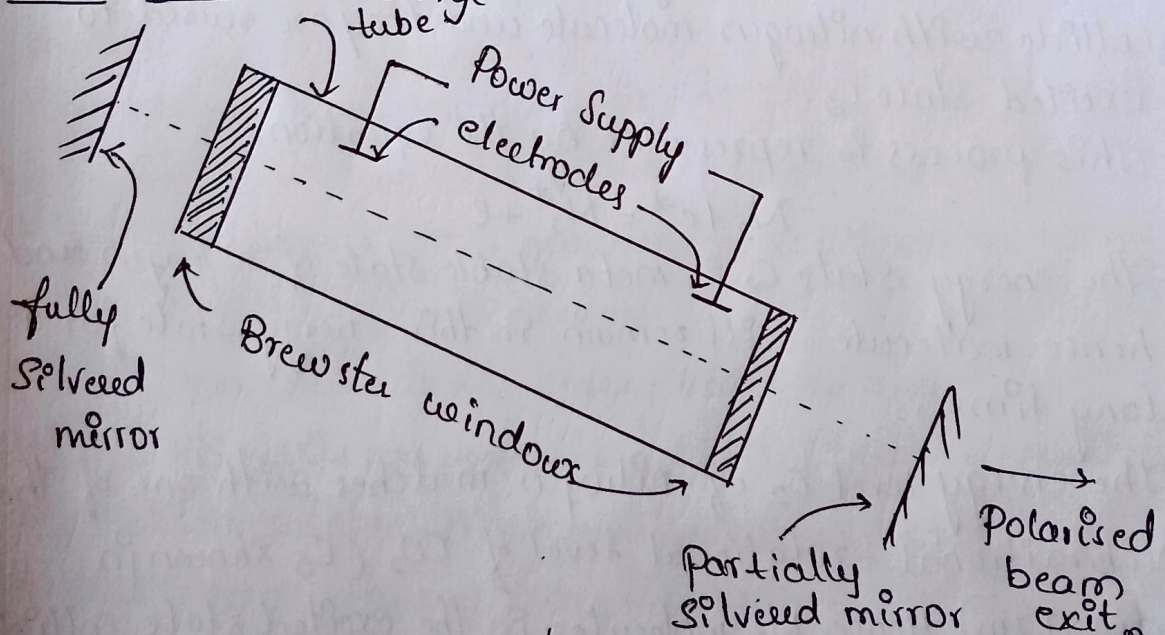 tube
Power Supply
electrodes
fully
silvered
mirror
Brewster windows
Partially
silvered mirror
Polarised
beam
exit